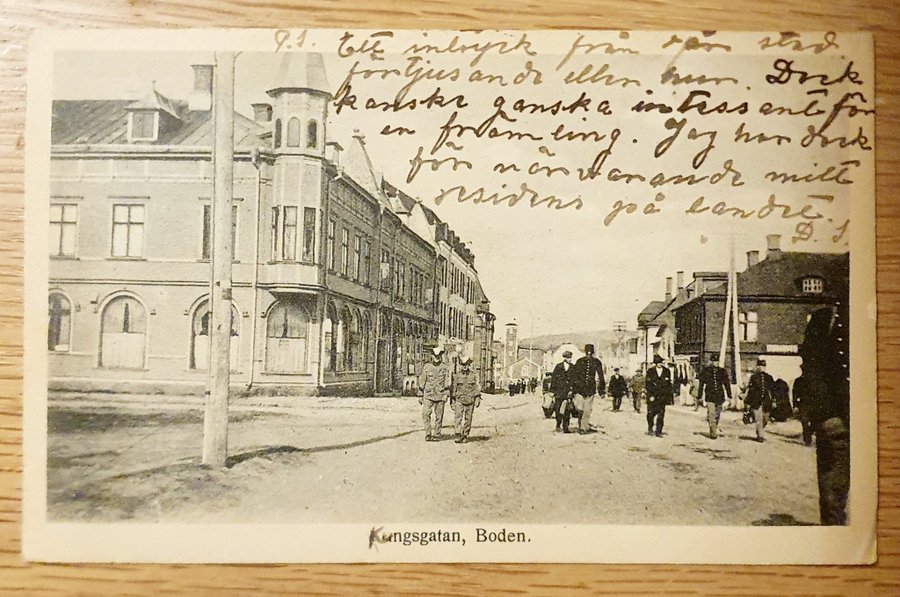 P.S. Ett intryck från vår stad
förtjusande eller hur. Dock
kanske ganska intressant för
en främling. Jag har dock
för närvarande mitt
residens på landet.
D. S.
Kungsgatan, Boden.